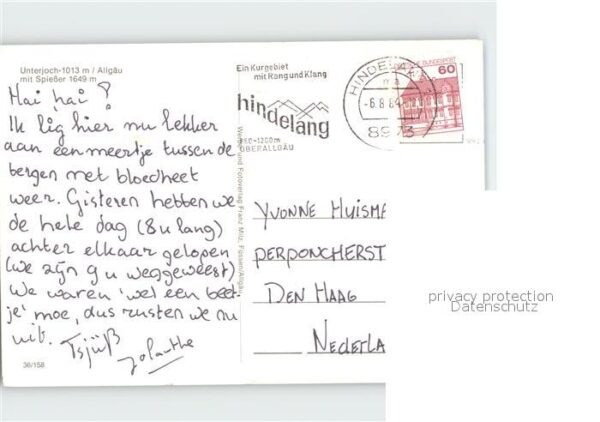 Unterjoch-1013 m / Allgäu
mit Spießer 1649 m
Hai hai!
Ik lig hier nu lekker
aan een meertje tussen de
bergen met bloedheet
weer. Gisteren hebben we
de hele dag (8 u lang)
achter elkaar gelopen
(we zijn 9 u weggeweest)
We waren wel een beet-
je moe, dus rusten we nu
uit. Tsjüß
Jolanthe
36/158
Werbe- und Fotoverlag Franz Milz, Füssen/Allgäu
Ein Kurgebiet
mit Rang und Klang
hindelang
850-1200m
OBERALLGÄU
HINDELANG
-6.8.84
8973
DEUTSCHE BUNDESPOST
60
YVONNE HUISMA
PERPONCHERST
DEN HAAG
NEDERLA
privacy protection
Datenschutz